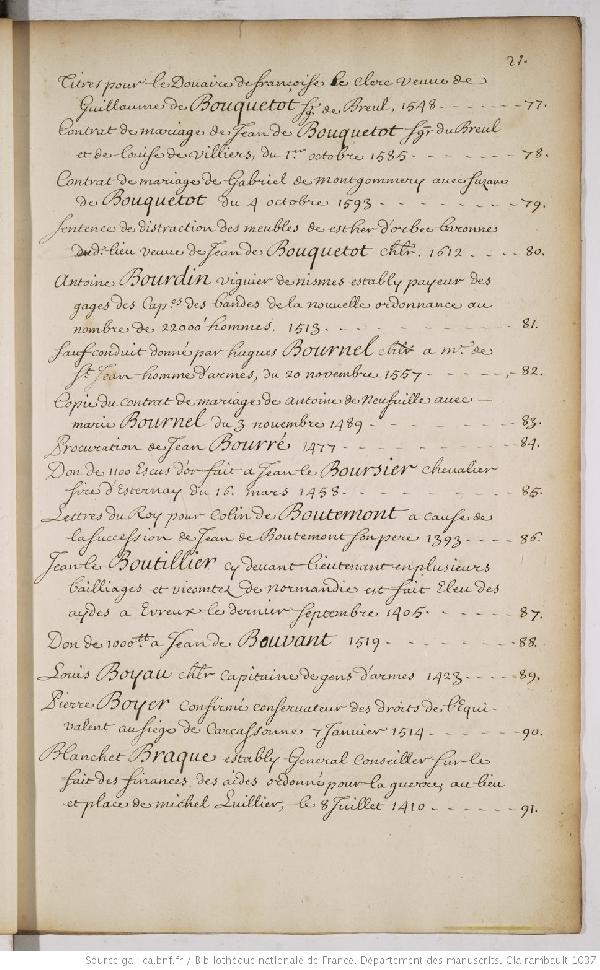 21.
Titres pour le Douaire de françoise le Clerc veuue de
Guillaume de Bouquetot sgr. de Breul, 1548 - - - - - - 77.
Contrat de mariage de Jean de Bouquetot sgr du Breul
et de Louise de Villiers, du 1er octobre 1585 - - - - - - 78.
Contrat de mariage de Gabriel de montgommery auec suzane
de Bouquetot du 4 octobre 1593 - - - - - - 79.
sentence de distraction des meubles de esther d'orbec baronne
dud. lieu veuue de Jean de Bouquetot chlr. 1612 - - - - 80.
Antoine Bourdin viguier de nismes estably payeur des
gages des Capes des bandes de la nouuelle ordonnance au
nombre de 22000 hommes. 1513 - - - - - - 81.
saufconduit donné par hugues Bournel chlr a mr. de
St. Jean homme d'armes, du 20 novembre 1557 - - - - - 82.
Copie du contrat de mariage de Antoine de Neufuille auec —
marie Bournel du 3 novembre 1489 - - - - - - 83.
Procuration de Jean Bourré 1477 - - - - - - 84.
Don de 1100 Escus d'or fait a Jean le Boursier chevalier
sire d'Esternay du 16. mars 1458 - - - - - - 85.
Lettres du Roy pour Colin de Boutemont a cause de
la succession de Jean de Boutemont son pere 1393 - - - - 86.
Jean le Boutillier cy deuant lieutenant en plusieurs
bailliages et vicomtez de normandie est fait Eleu des
aydes a Evreux le dernier septembre 1405 - - - - - - 87.
Don de 1000tt a Jean de Bouvant 1519 - - - - - - 88.
Louis Boyau chlr Capitaine de gens d'armes 1423 - - - - 89.
Pierre Boyer confirmé conseruateur des droits de l'Equi-
valent au siege de Carcassonne 7 Januier 1514 - - - - - 90.
Blanchet Braque estably General Conseiller sur le
fait des finances des aides ordonné pour la guerre, au lieu
et place de michel Luillier, le 8 Juillet 1410 - - - - - - 91.
Source gallica.bnf.fr / Bibliothèque nationale de France. Département des manuscrits. Clairambault 1037